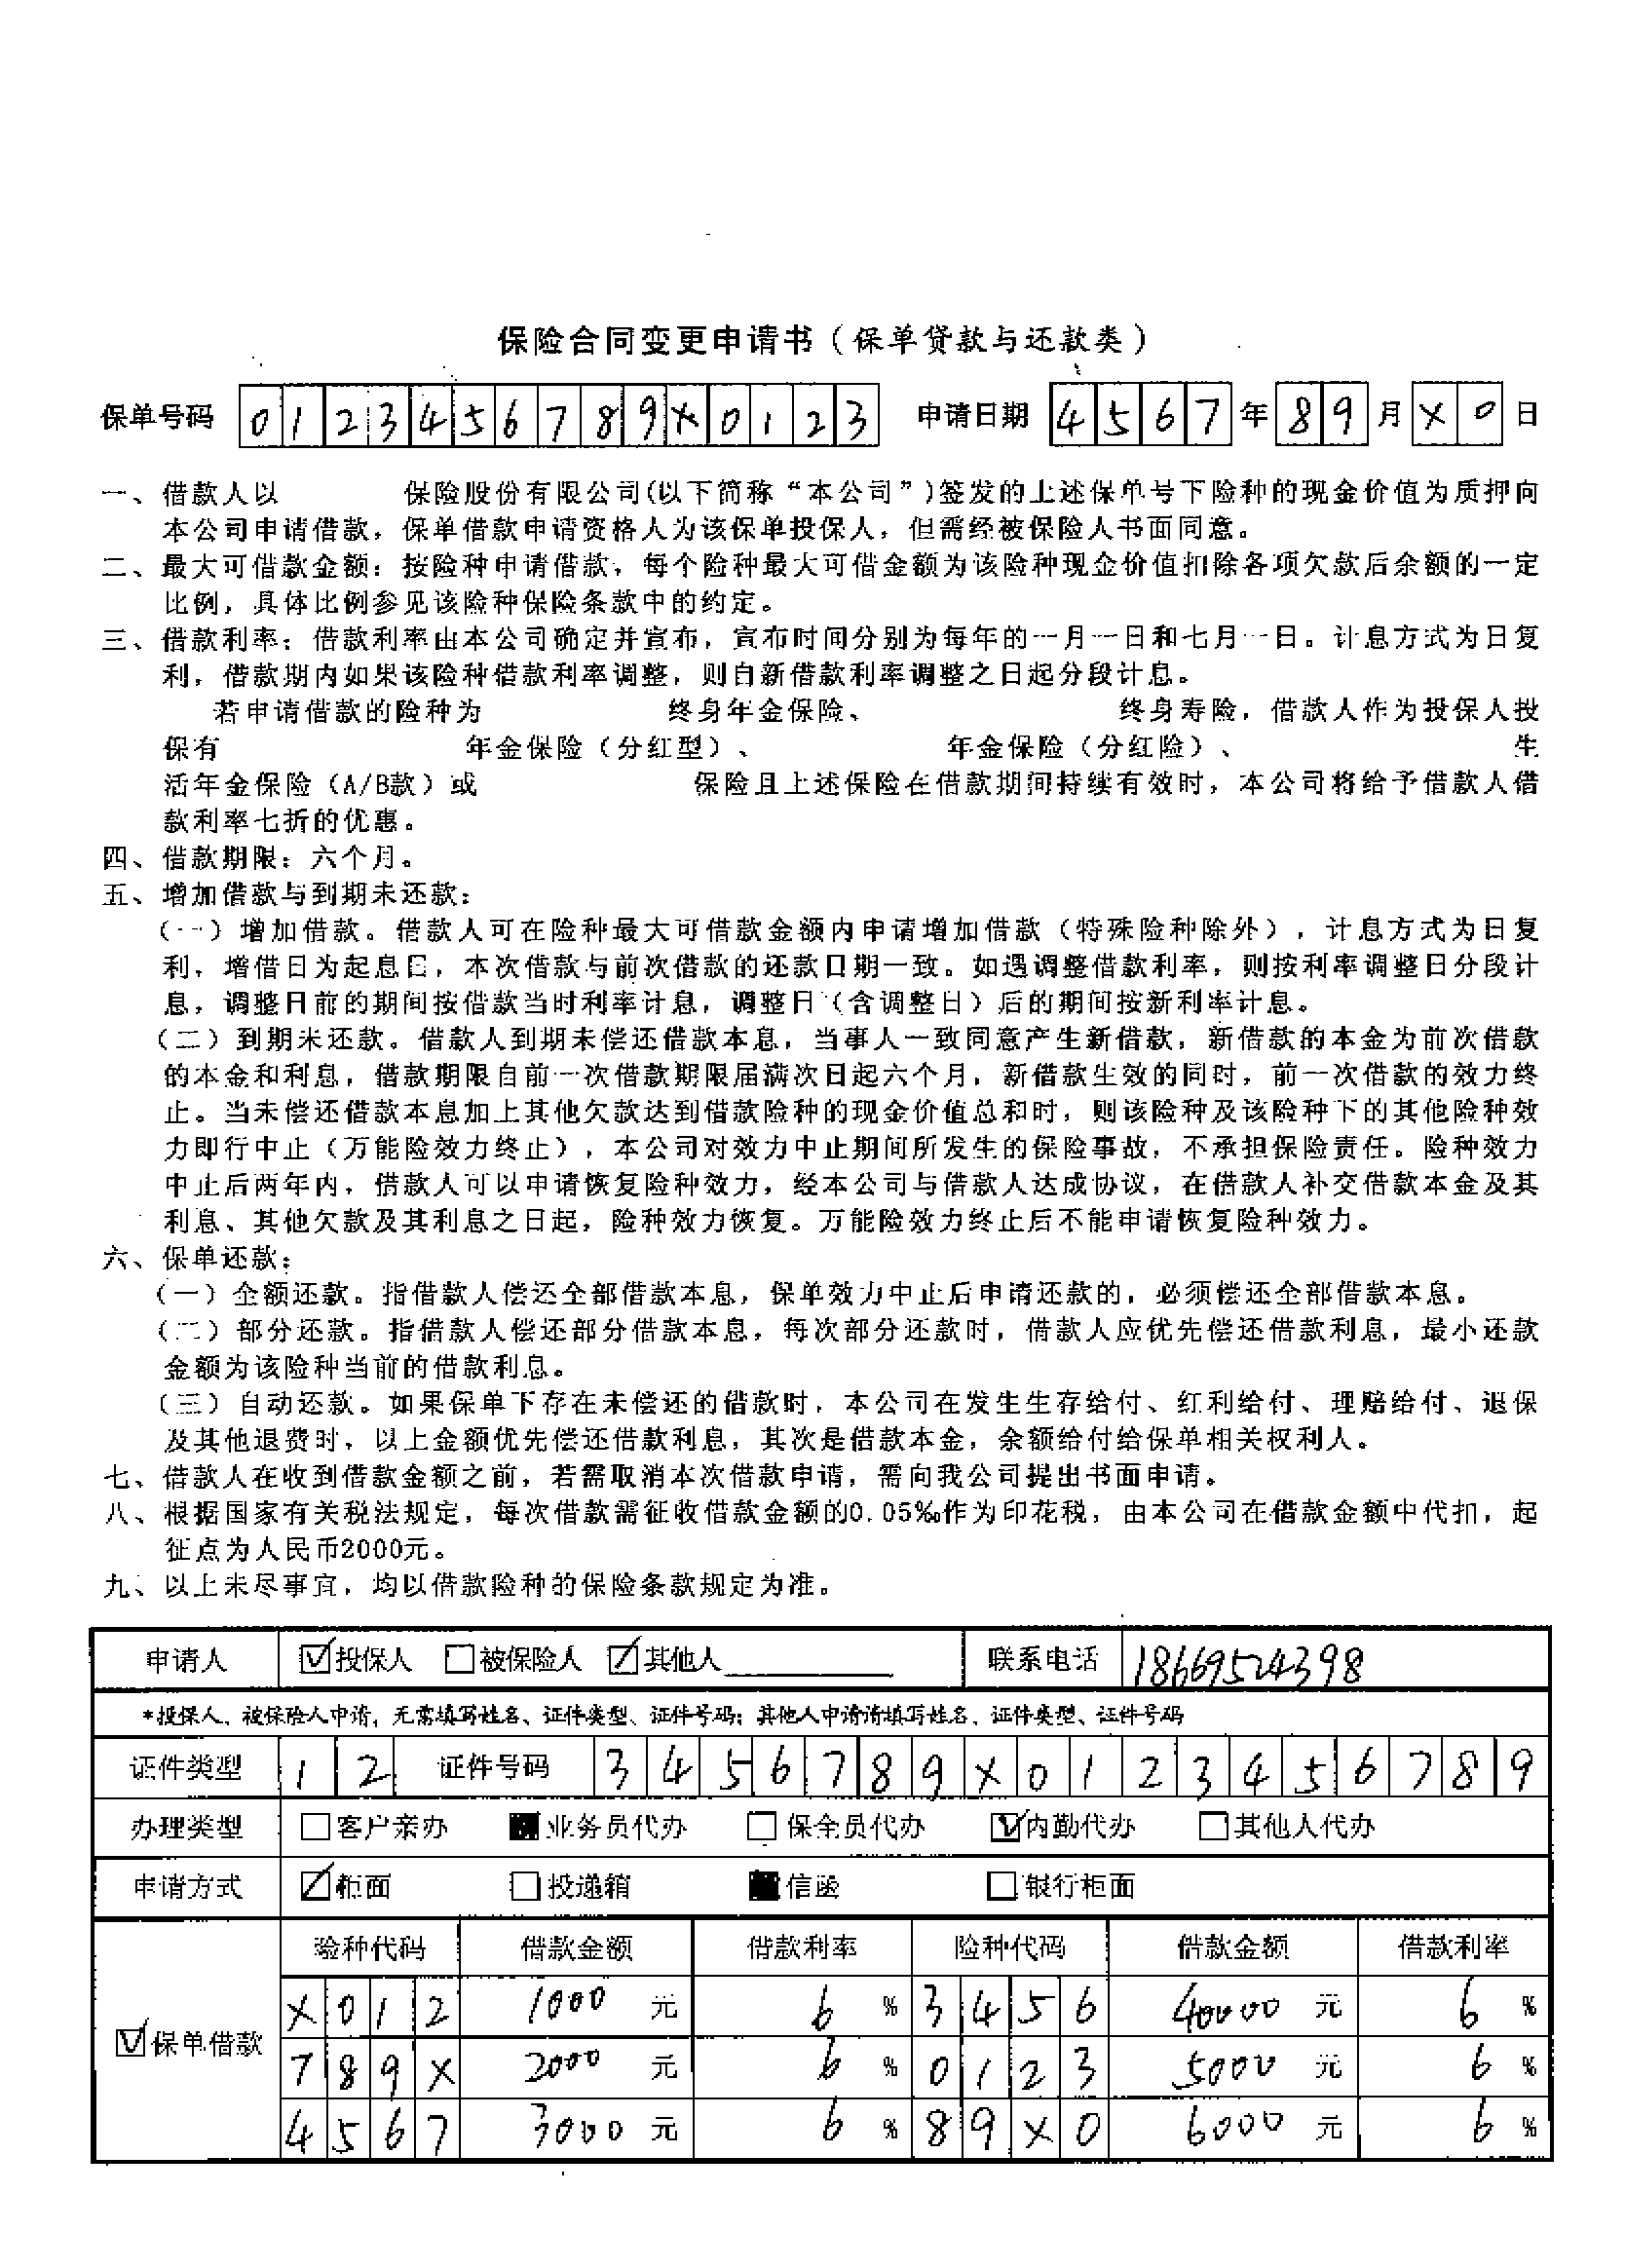 保险合同变更申请书（保单贷款与还款类）
保单号码 0 1 2 3 4 5 6 7 8 9 X 0 1 2 3 申请日期 4 5 6 7 年 8 9 月 X 0 日
一、借款人以 保险股份有限公司(以下简称“本公司”)签发的上述保单号下险种的现金价值为质押向
本公司申请借款，保单借款申请资格人为该保单投保人，但需经被保险人书面同意。
二、最大可借款金额：按险种申请借款，每个险种最大可借金额为该险种现金价值扣除各项欠款后余额的一定
比例，具体比例参见该险种保险条款中的约定。
三、借款利率：借款利率由本公司确定并宣布，宣布时间分别为每年的一月一日和七月一日。计息方式为日复
利，借款期内如果该险种借款利率调整，则自新借款利率调整之日起分段计息。
若申请借款的险种为 终身年金保险、 终身寿险，借款人作为投保人投
保有 年金保险（分红型）、 年金保险（分红险）、 生
活年金保险（A/B款）或 保险且上述保险在借款期间持续有效时，本公司将给予借款人借
款利率七折的优惠。
四、借款期限：六个月。
五、增加借款与到期未还款：
（一）增加借款。借款人可在险种最大可借款金额内申请增加借款（特殊险种除外），计息方式为日复
利，增借日为起息日，本次借款与前次借款的还款日期一致。如遇调整借款利率，则按利率调整日分段计
息，调整日前的期间按借款当时利率计息，调整日（含调整日）后的期间按新利率计息。
（二）到期未还款。借款人到期未偿还借款本息，当事人一致同意产生新借款，新借款的本金为前次借款
的本金和利息，借款期限自前一次借款期限届满次日起六个月，新借款生效的同时，前一次借款的效力终
止。当未偿还借款本息加上其他欠款达到借款险种的现金价值总和时，则该险种及该险种下的其他险种效
力即行中止（万能险效力终止），本公司对效力中止期间所发生的保险事故，不承担保险责任。险种效力
中止后两年内，借款人可以申请恢复险种效力，经本公司与借款人达成协议，在借款人补交借款本金及其
利息、其他欠款及其利息之日起，险种效力恢复。万能险效力终止后不能申请恢复险种效力。
六、保单还款：
（一）全额还款。指借款人偿还全部借款本息，保单效力中止后申请还款的，必须偿还全部借款本息。
（二）部分还款。指借款人偿还部分借款本息，每次部分还款时，借款人应优先偿还借款利息，最小还款
金额为该险种当前的借款利息。
（三）自动还款。如果保单下存在未偿还的借款时，本公司在发生生存给付、红利给付、理赔给付、退保
及其他退费时，以上金额优先偿还借款利息，其次是借款本金，余额给付给保单相关权利人。
七、借款人在收到借款金额之前，若需取消本次借款申请，需向我公司提出书面申请。
八、根据国家有关税法规定，每次借款需征收借款金额的0.05‰作为印花税，由本公司在借款金额中代扣，起
征点为人民币2000元。
九、以上未尽事宜，均以借款险种的保险条款规定为准。
申请人 投保人 被保险人 其他人 联系电话 18669524398
*投保人、被保险人申请，无需填写姓名、证件类型、证件号码；其他人申请请填写姓名、证件类型、证件号码
证件类型 1 2 证件号码 3 4 5 6 7 8 9 X 0 1 2 3 4 5 6 7 8 9
办理类型 客户亲办 业务员代办 保全员代办 内勤代办 其他人代办
申请方式 柜面 投递箱 信函 银行柜面
险种代码 借款金额 借款利率 险种代码 借款金额 借款利率
X 0 1 2 1000 元 6 % 3 4 5 6 40000 元 6 %
保单借款 7 8 9 X 2000 元 6 % 0 1 2 3 5000 元 6 %
4 5 6 7 3000 元 6 % 8 9 X 0 6000 元 6 %